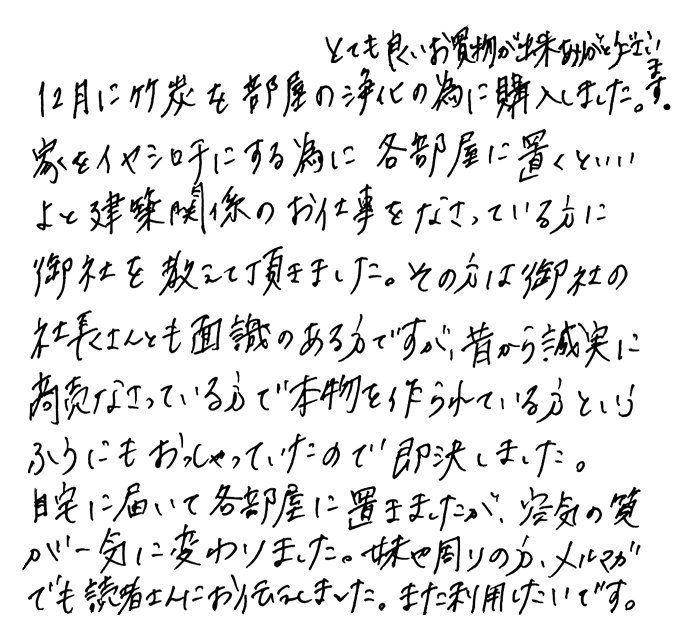 とても良いお買物が出来ありがとうございます。
12月に竹炭を部屋の浄化の為に購入しました。
家をイヤシロチにする為に各部屋に置くといい
よと建築関係のお仕事をなさっている方に
御社を教えて頂きました。その方は御社の
社長さんとも面識のある方ですが、昔から誠実に
商売なさっている方で本物を作られている方という
ふうにもおっしゃっていたので即決しました。
自宅に届いて各部屋に置きましたが、空気の質
が一気に変わりました。妹や周りの方、メルマガ
でも読者さんにお伝えしました。また利用したいです。